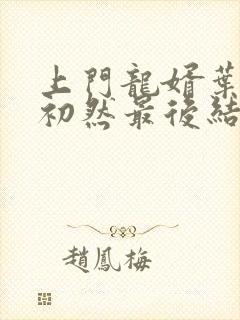 上門龍婿葉
初然最後結
趙鳳梅